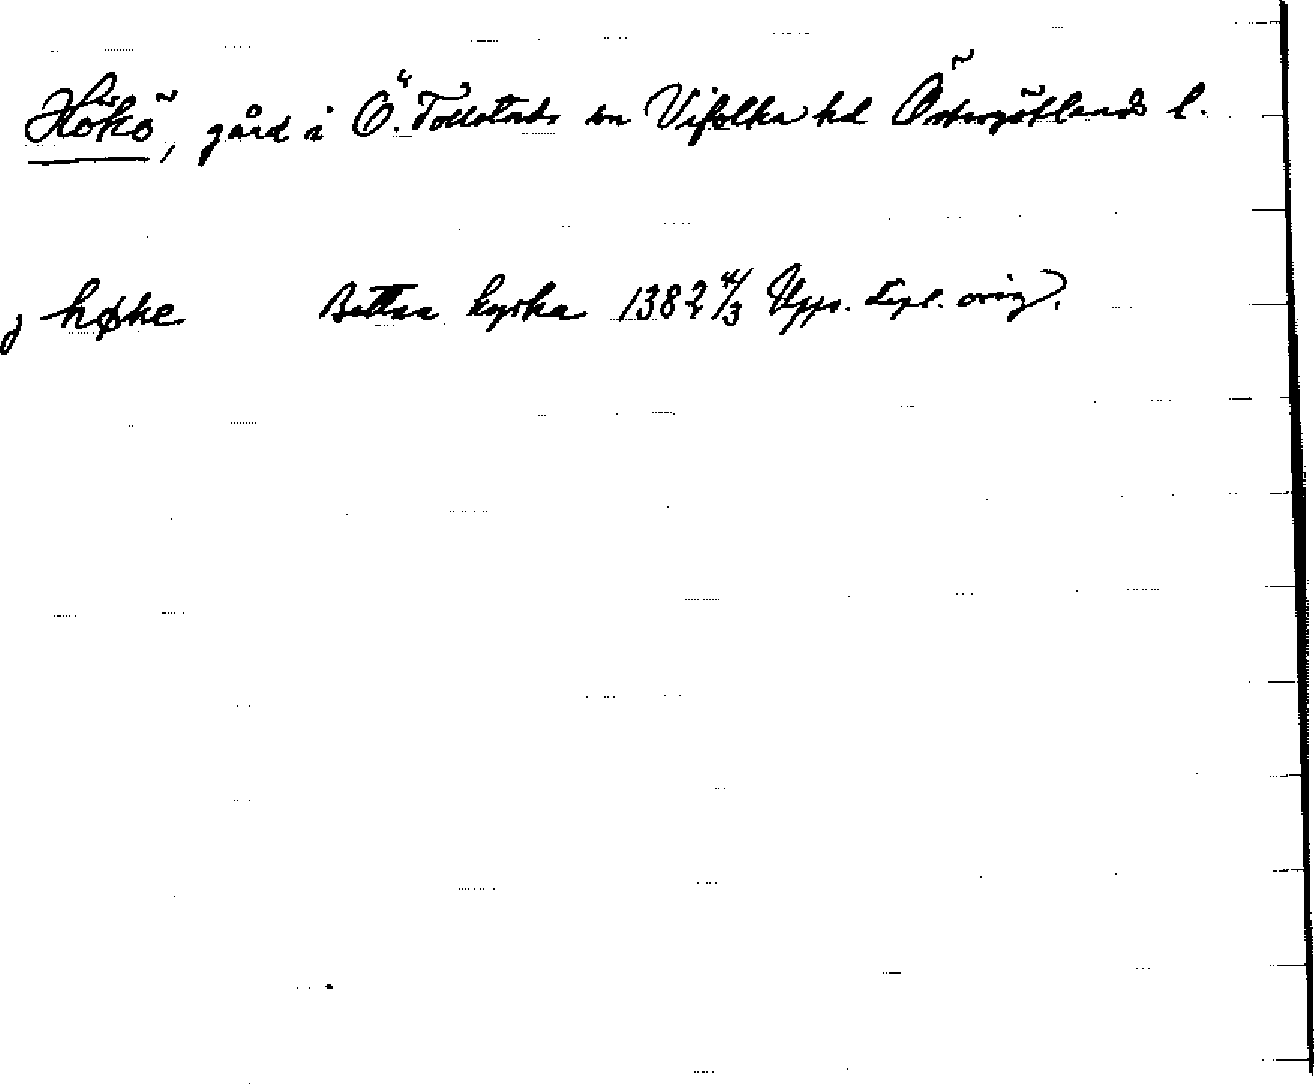 Hökö, gård i Ö. Tollstads sn Vifolka hd Östergötlands l.
j høke Bettna kyrka 1382 4/3 Upps. dipl. orig.